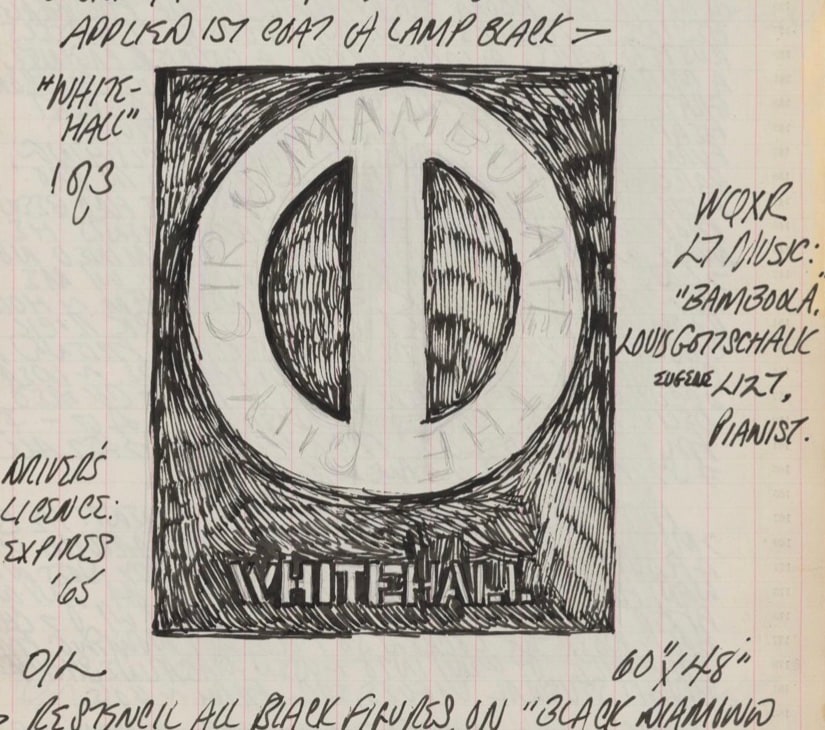 APPLIED 1ST COAT OF LAMP BLACK
"WHITE-
HALL"
1 of 3
CIRCUMAMBULATE
THE CITY
WQXR
LT MUSIC:
"BAMBOOLA,"
LOUIS GOTTSCHALK
EUGENE LIZT,
PIANIST.
DRIVER'S
LICENCE:
EXPIRES
'65
WHITEHALL
O/L
60" X 48"
RESTENCIL ALL BLACK FIGURES ON "BLACK DIAMOND